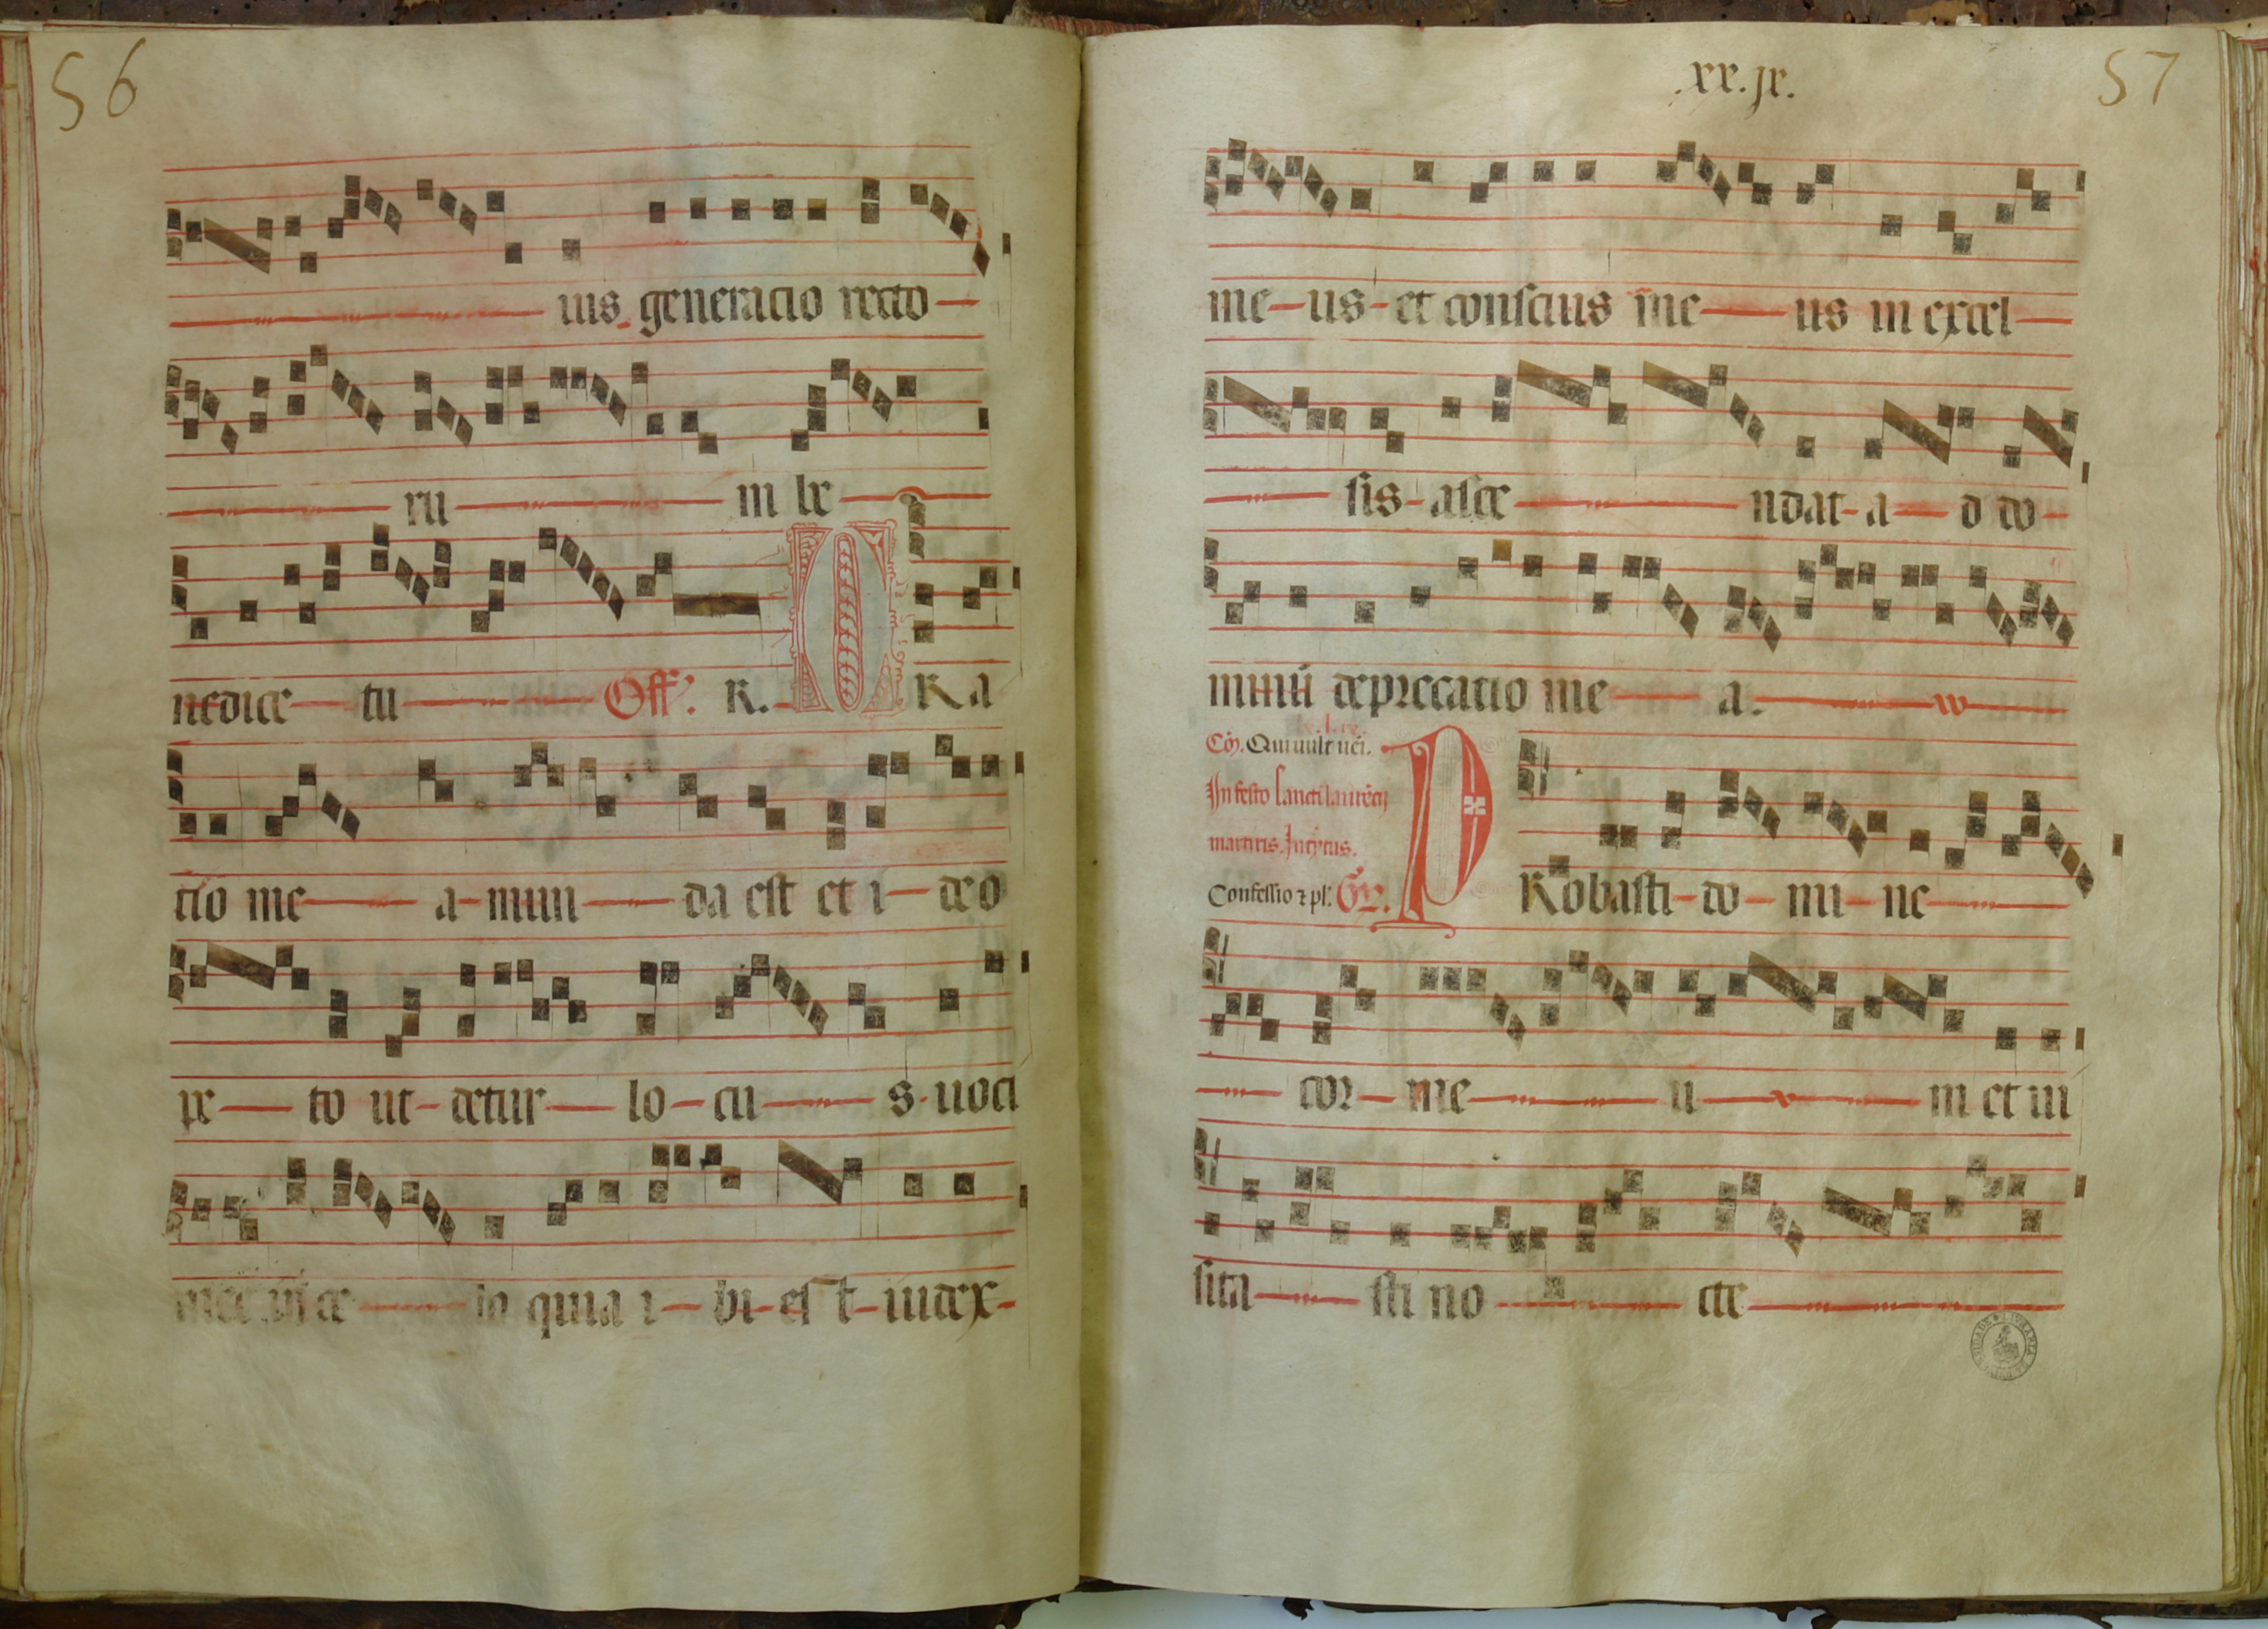 56
ius generacio recto
ru in be
nedice tu Off. R. ORa
cio me a mun da est et i deo
pe to ut detur lo cu s uoci
mee in ce lo quia i bi est iudex
.xx.jx.
57
me us et conscius me us in excel
sis asce ndat a d do
minū deprecatio me a.
Cō. Qui uult uēi.
In festo sancti laurēcij
martiris. Introytus.
Confessio ⁊ pl. Gr.
PRobasti do mi ne
cor me u m et ui
sita sti no cte